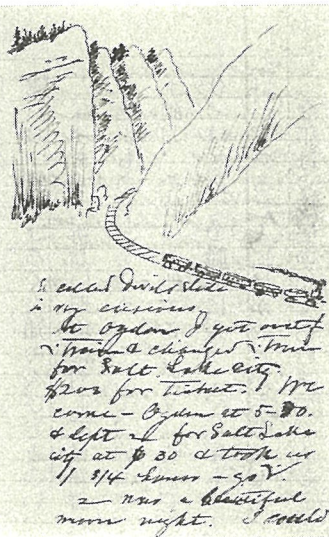 called Devils Slide
is very curious
At Ogden I got out of
train & changed train
for Salt Lake City
$2.00 for Ticket. We
come – Ogden at 5-30.
& left for Salt Lake
city at 30 & took us
1 3/4 hours – go
was a beautiful
moon night. I could